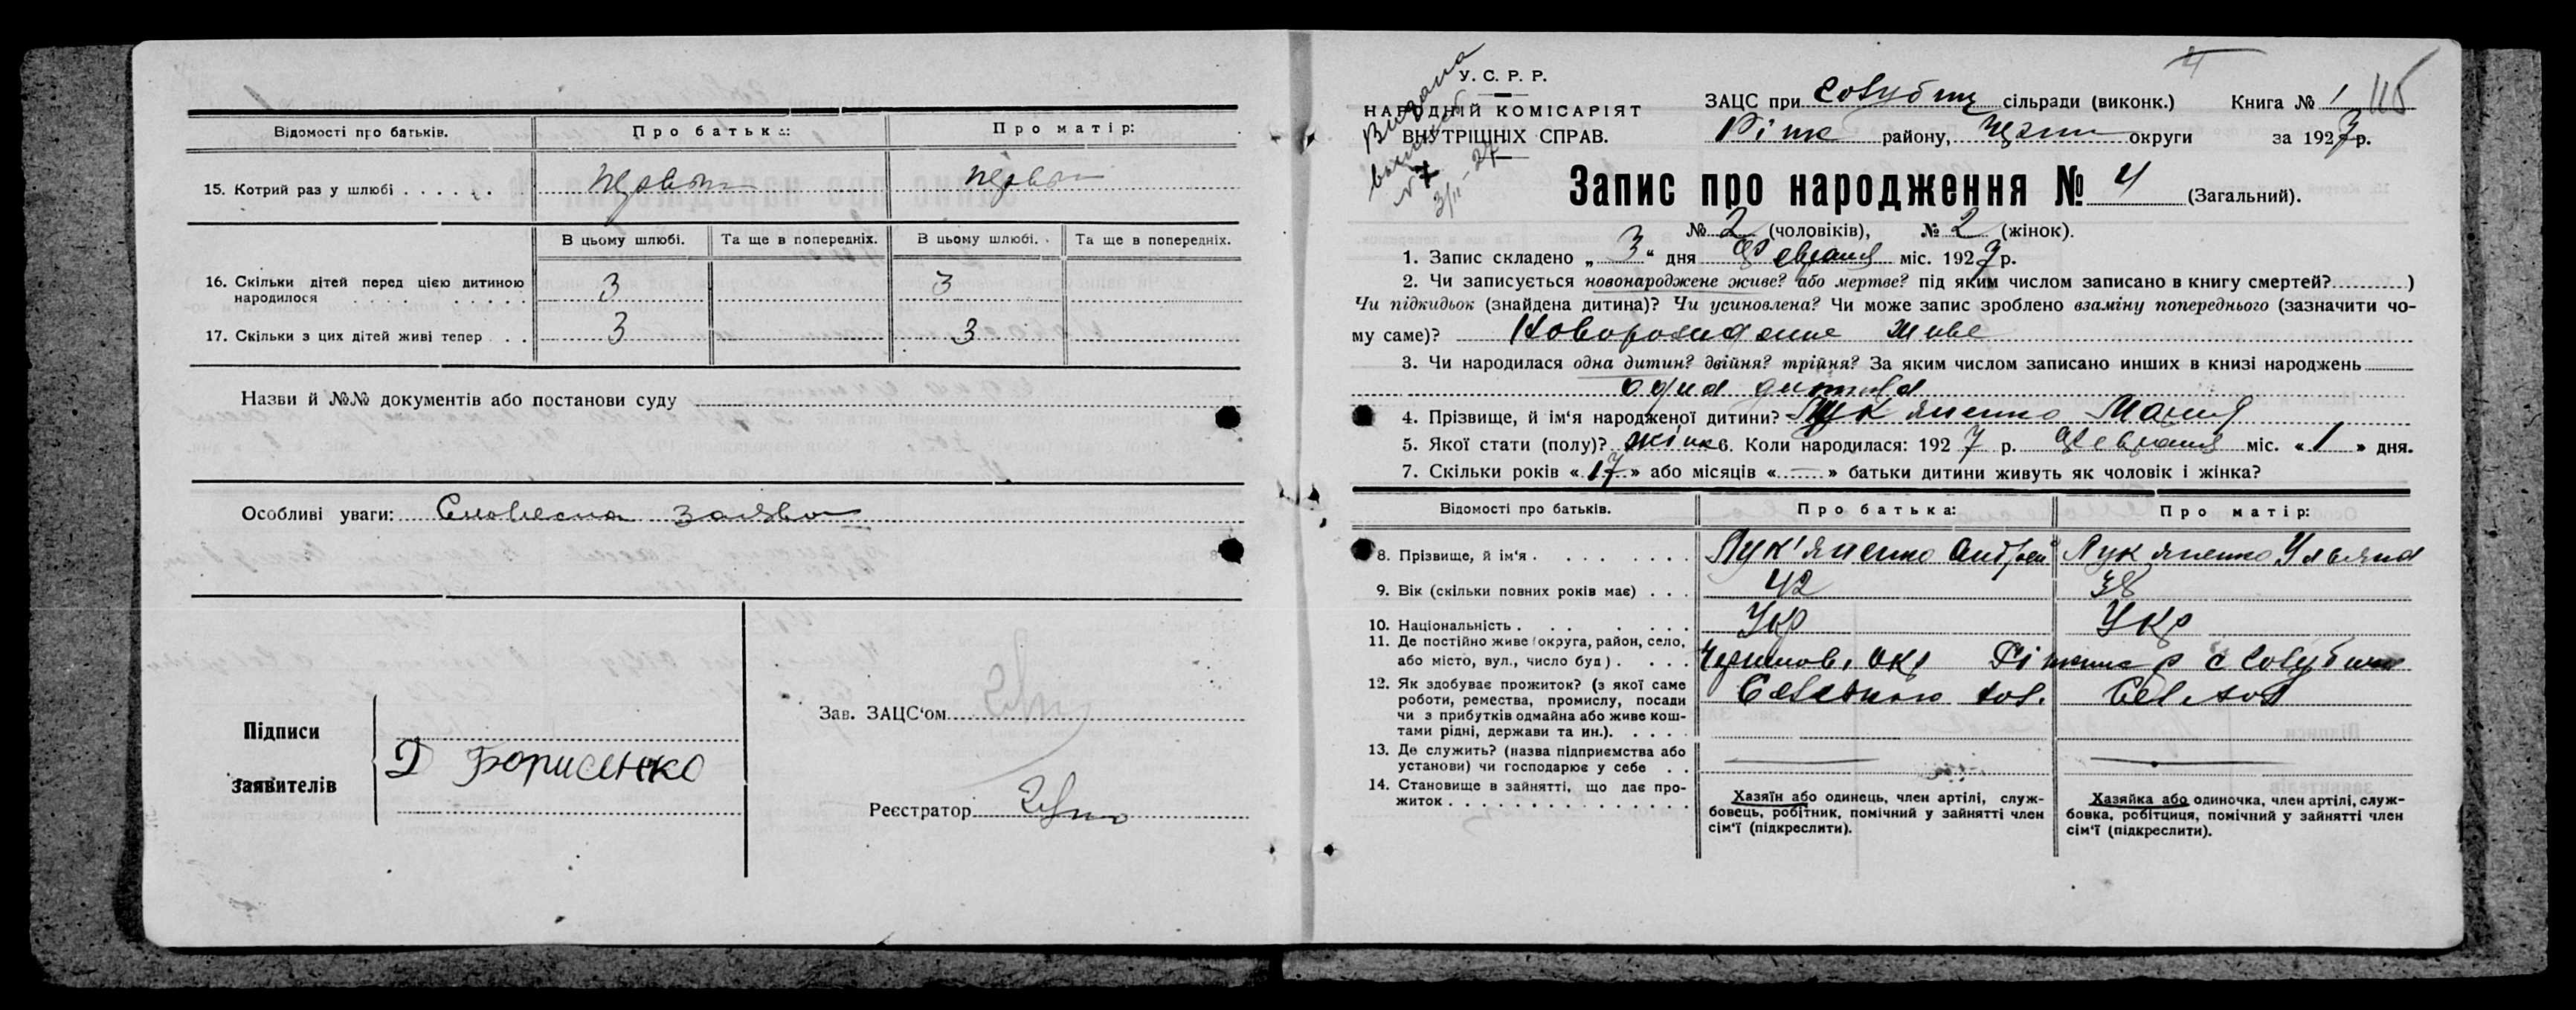 Відомості про батьків. Про батька: Про матір:
15. Котрий раз у шлюбі
В цьому шлюбі. Та ще в попередніх. В цьому шлюбі. Та ще в попередніх.
16. Скільки дітей перед цією дитиною 3 3
народилося
17. Скільки з цих дітей живі тепер 3 3
Назви й №№ документів або постанови суду
Особливі уваги: Словесна заява
Підписи
заявителів
Д Борисенко
Зав. ЗАЦС'ом
Реєстратор
У. С. Р. Р.
НАРОДНІЙ КОМІСАРІЯТ
ВНУТРІШНІХ СПРАВ.
Видана
№ 7
3/II-27
4
115
ЗАЦС при сільради (виконк.) Книга № 1
району, округи за 1927 р.
Запис про народження № 4 (Загальний).
№ 2 (чоловіків), № 2 (жінок).
1. Запис складено „3“ дня Февраля міс. 1927 р.
2. Чи записується новонароджене живе? або мертве? під яким числом записано в книгу смертей? )
Чи підкидьок (знайдена дитина)? Чи усиновлена? Чи може запис зроблено взаміну попереднього (зазначити чо-
му саме)? живе
3. Чи народилася одна дитин? двійня? трійня? За яким числом записано инших в книзі народжень
одна дитина
4. Прізвище, й ім'я народженої дитини? Лук'яненко Мария
5. Якої стати (полу)? жінк 6. Коли народилася: 1927 р. Февраля міс. «1» дня.
7. Скільки років «17» або місяців «—» батьки дитини живуть як чоловік і жінка?
Відомості про батьків. Про батька: Про матір:
8. Прізвище, й ім'я Лук'яненко Андрей Лук'яненко Ульяна
9. Вік (скільки повних років має) 42 38
10. Національність Укр Укр
11. Де постійно живе (округа, район, село,
або місто, вул., число буд) окр р с
12. Як здобуває прожиток? (з якої саме
роботи, ремества, промислу, посади
чи з прибутків одмайна або живе кош-
тами рідні, держави та ин.).
13. Де служить? (назва підприємства або
установи) чи господарює у себе — —
14. Становище в зайнятті, що дає про-
житок
Хазяїн або одинець, член артілі, служ-
бовець, робітник, помічний у зайнятті член
сім'ї (підкреслити).
Хазяйка або одиночка, член артілі, служ-
бовка, робітщиця, помічний у зайнятті член
сім'ї (підкреслити).